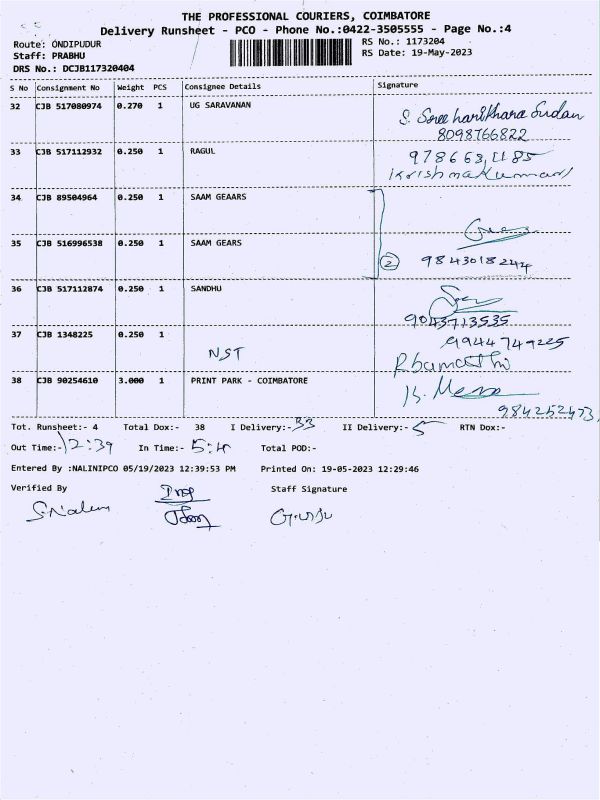 THE PROFESSIONAL COURIERS, COIMBATORE
Delivery Runsheet - PCO - Phone No.:0422-3505555 - Page No.:4
Route: ONDIPUDUR
Staff: PRABHU
DRS No.: DCJB117320404
RS No.: 1173204
RS Date: 19-May-2023
S No Consignment No Weight PCS Consignee Details Signature
32 CJB 517080974 0.270 1 UG SARAVANAN
8098766822
33 CJB 517112932 0.250 1 RAGUL
Krishnakumar
34 CJB 89504964 0.250 1 SAAM GEAARS
35 CJB 516996538 0.250 1 SAAM GEARS
2 9843018244
36 CJB 517112874 0.250 1 SANDHU
9043713535
37 CJB 1348225 0.250 1
NST
9944749225
38 CJB 90254610 3.000 1 PRINT PARK - COIMBATORE
984252473
Tot. Runsheet:- 4 Total Dox:- 38 I Delivery:- 33 II Delivery:- 5 RTN Dox:-
Out Time:- 12:39 In Time:- Total POD:-
Entered By :NALINIPCO 05/19/2023 12:39:53 PM Printed On: 19-05-2023 12:29:46
Verified By Staff Signature